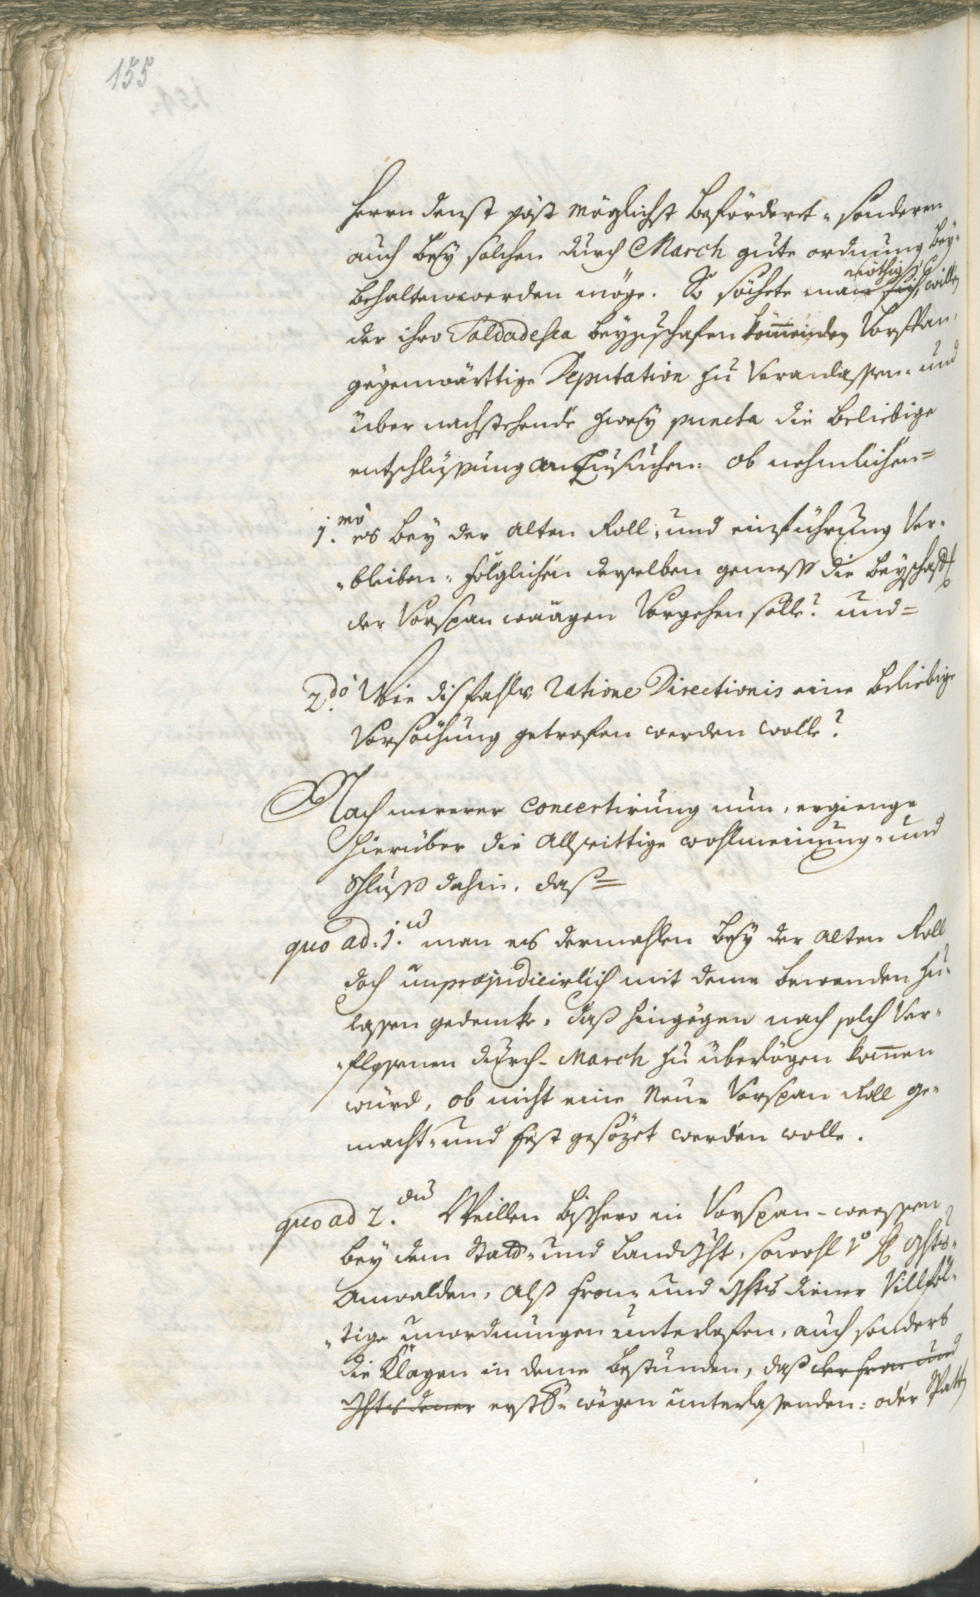 155
Herrn denst post möglichst befördert= sonderen
auch bey solchen durch March gute ordnung bey=
behalten werden möge. So söchete man nöthig zu sein, willen
der ihro Soldadesca beyzuschafen kom̅enden Vorspan,
gegenwärttige Deputation zu veranlassen= und
über nachstehende zwey puncta die beliebige
entschlüssung anzusuchen: ob nehmlichen=
1.mo es bey der alten Roll= und einführung ver=
=bleiben= folglichen derselben gemess die beyschaff
der Vorspan wäägen vorgehen solle? und=
2.do Wie disfahls Ratione Directionis eine beliebige
Vorsöchung getrofen werden wolle?
Nach mererer concertirung nun, ergienge
hierüber die allseittige wohlmeinung= und
Schluss dahin, dass=
quo ad: 1.um man es dermahlen bey der alten Roll
doch unprejudicirlich mit deme bewenden zu=
lassen gedencke, dass hingegen nach solch ver=
=flossenen durch- March zu überlögen kom̅en
würd, ob nicht eine neue Vorspan Roll ge=
macht= und fest gesözet werden wolle.
quo ad 2.dum Weillen bishero in Vorspan-weessen
bey dem Statt= und Landght, sowohl
Anwalden, alss fron= und ghts diener villföl=
=tige unordnungen unterlofen, auch sonders
die Klagen in deme bestunden, dass der fron und
ghts diener erst= wegen unterlassenden: oder spatt